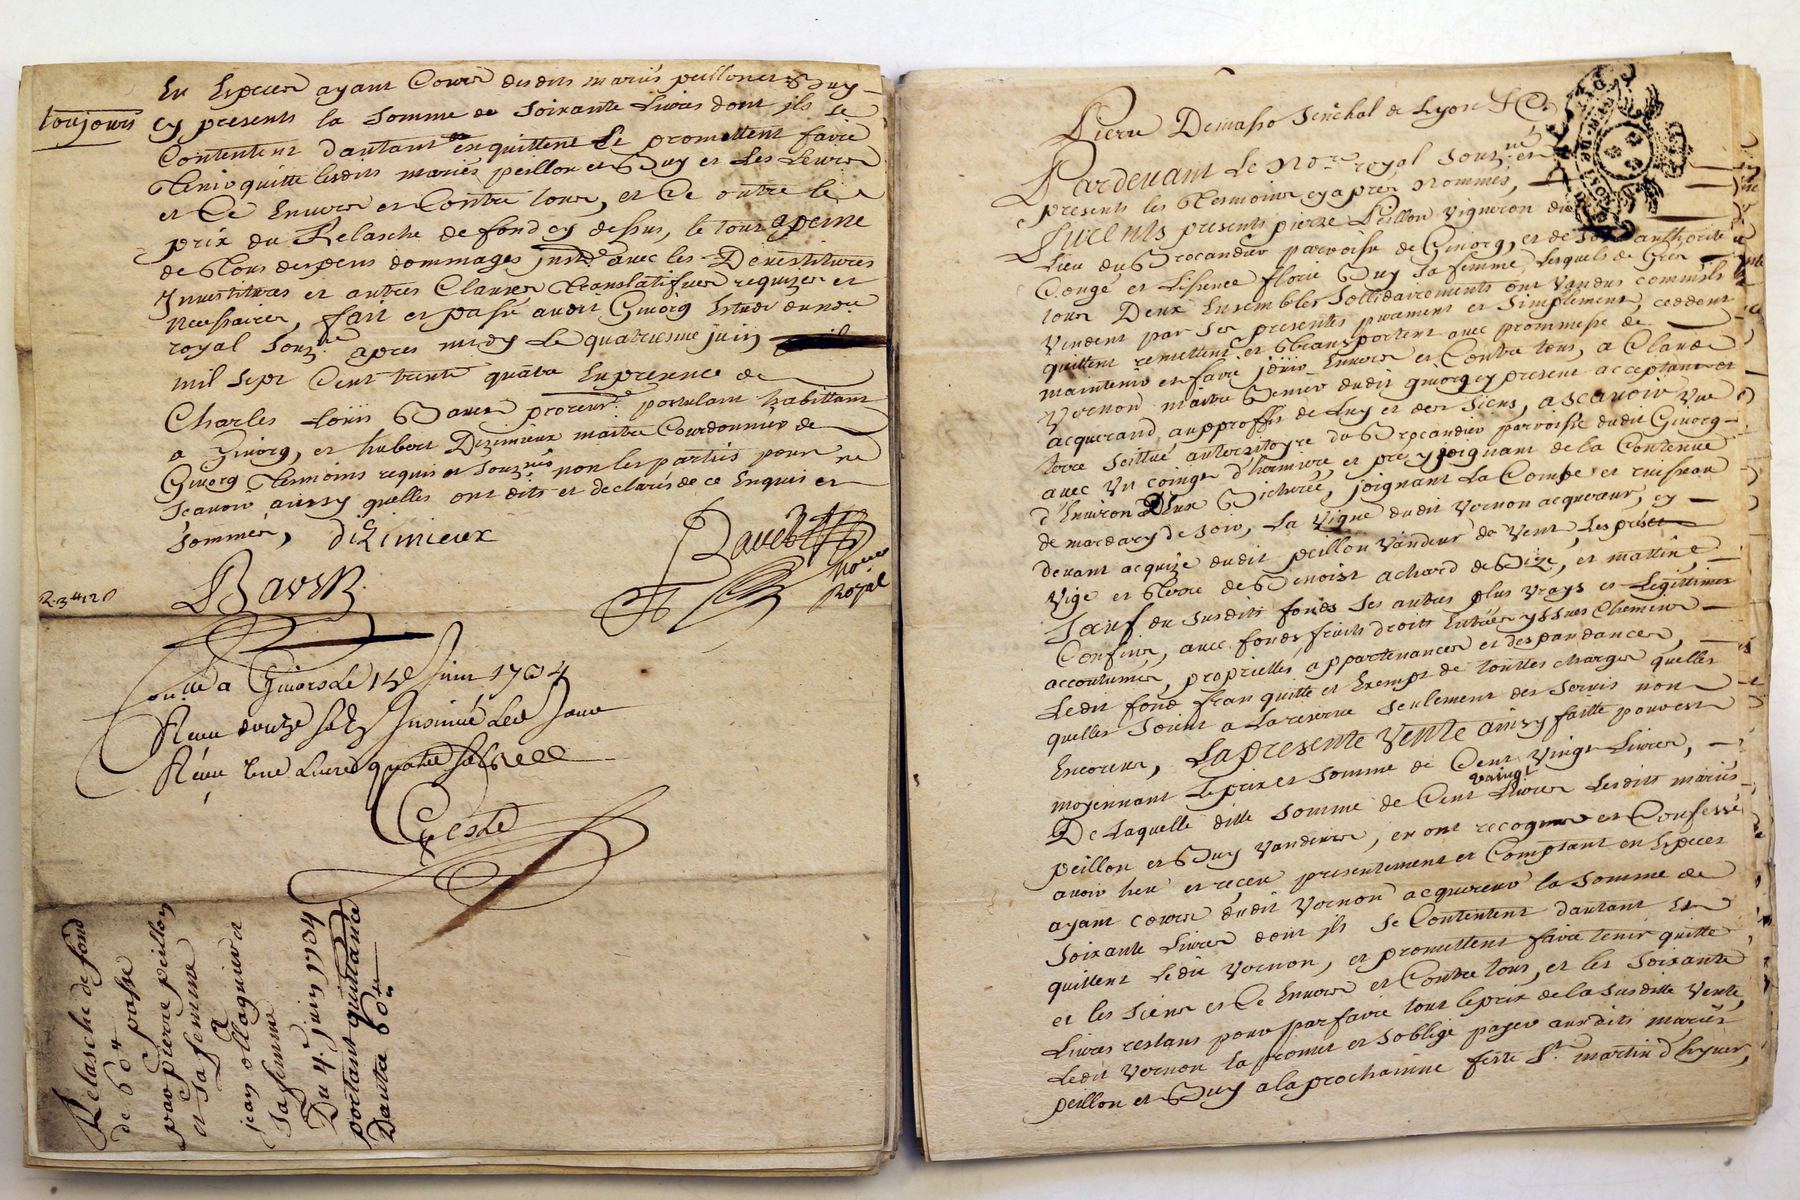 En Especes ayant Cours desdits mariés peillon et Guy
toujours
cy presents la somme de soixante Livres dont ils se
Contentent d'autant en quittent Et promettent faire
tenir quitte lesdits mariés peillon et Guy et Les Leurs
et Ce Envers et Contre tous, et Ce outre le
prix du Relasche de fond cy dessus, le tout a peine
de tous despens dommages avec les Devestitures
Investitures et autres Clauses translatifves requises et
necessaires, fait et passé audit Givorg Estude du no.re
royal souz.né apres midy Le quatriesme juin
mil sept Cent trente quatre En presence de
Charles Loüis Baver postulant habittant
a Givorg, et hubert Dizimieux maitre Courdonnier de
Givorg tesmoins requis et souz.nés non les parties pour ne
scavoir ainsy quelles ont dits et declarés de ce Enquis et
sommés, dizimieux
Royal
a Givors Le 15e Juin 1734
Receu douze sols Insinué Led Jour
Receu une Livre quatre sols
Relasche de fond
de 60 # passé
par pierre peillon
et sa femme
a
jean ollagnier et
sa femme
Du 4.e juin 1734
portant quittance
D'autre 60 #
Pierre Demasso Senéchal de Lyon
Pardevant Le No.re royal souz.né et
presents les tesmoins cy apres Nommés,
Furents presents pierre Peillon vigneron du
Lieu du Brocandier parroisse de Givorg, et de son authorité
Congé et Lisence florie Guy sa femme, Lesquels de Gres
tous Deux Ensembles sollidairements ont vendus commils
vendent par Ses presentes purement et simplement, ceddent
quittent remettent et transportent avec prommesse de
maintenir et faire jouir Envers et Contre tous, a Claude
Vernon maitre dudit givorg cy present acceptant et
acquerand, au proffis de Luy et des siens, a scavoir Une
terre scittué au territoyre du Brocandier parroisse dudit Givorg
avec un coing d'hermiere, et pré y joignant de la Contenue
d'Environ Deux Bicherée, joignant La Combe et ruisseau
de mardary de soir, La Vigne dudit Vernon acquereur, cy
devant acquize dudit peillon vandeur de vent, Les prés
Vige et terre de Benoist achard de Bize, et mattin,
Sauf du susdits fonds Ses autres plus vrays et Legittimes
Confins, avec fonds fruits droits Entrées yssues Chemins
accoutumés, proprietés, appartenances et despandances,
Ledit fond franquitte et Exempt de touttes charges quelles
quelles soient a La reserve seulement des servis non
Encourus, La presente Vente ainsy faitte pour et
moyennant Le prix et somme de Cent Vingt Livres,
De Laquelle ditte somme de Cent vaingt Livres Lesdits mariés
peillon et Guy vandeurs, en ont recognus et Confessé
avoir heu et recеu presentement et Comptant en Especes
ayant cours dudit Vernon acquereur la somme de
soixante Livres dont ils se Contentent d'autant En
quittent Ledit Vernon, et promettent faire tenir quitte
et les siens et Ce Envers et Contre tous, et les soixante
Livres restans pour parfaire tout le prix de la susditte Vente,
Ledit Vernon La promet et s'oblige payer ausdits mariés
peillon et Guy a la prochainne feste S.t martin d'hyver,